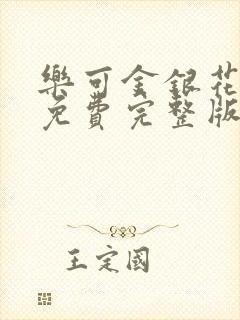 樂可金銀花
免費完整版
王定國